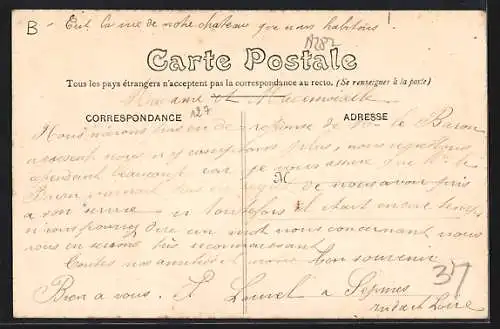 B - C'est la vue de notre chateau que nous habitons !
A282
Carte Postale
Tous les pays étrangers n'acceptent pas la correspondance au recto. (Se renseigner à la poste)
Madame et Mademoiselle
CORRESPONDANCE 127 ADRESSE
Nous n'avons pas eu de réponse de Mr le Baron
nous n'y comptions plus, nous regrettons
cependant beaucoup car je vous assure que Mr le
Baron de nous avoir pris
M
a son service si toutefois il était encore temps
vous pourriez dire un mot nous concernant nous
vous en serions très reconnaissant
Toutes nos amitiés et bon souvenir
Bien a vous. P Louvel a Sepmes
Indre et Loire
37